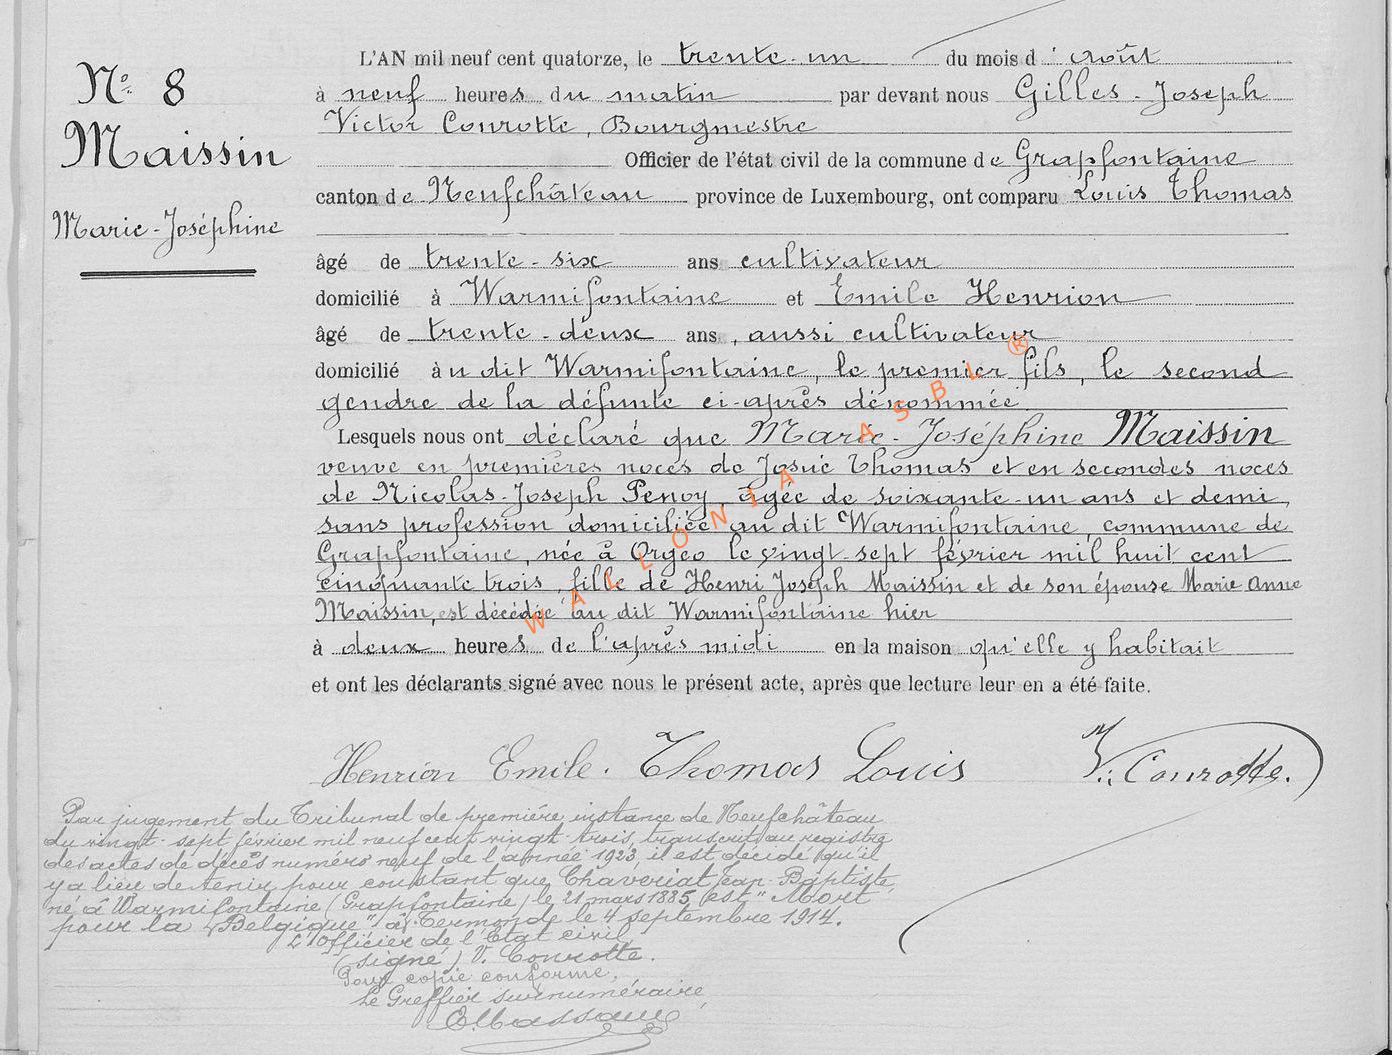 N° 8
Maissin
Marie-Joséphine
L'AN mil neuf cent quatorze, le trente-un du mois d'août
à neuf heures du matin par devant nous Gilles-Joseph
Victor Conrotte, Bourgmestre
Officier de l'état civil de la commune de Grapfontaine
canton de Neufchâteau province de Luxembourg, ont comparu Louis Thomas
âgé de trente-six ans cultivateur
domicilié à Warmifontaine et Emile Henrion
âgé de trente-deux ans, aussi cultivateur
domicilié au dit Warmifontaine, le premier fils, le second
gendre de la défunte ci-après dénommée
Lesquels nous ont déclaré que Marie-Joséphine Maissin
veuve en premières noces de Josué Thomas et en secondes noces
de Nicolas-Joseph Penoy, âgée de soixante-un ans et demi,
sans profession domiciliée au dit Warmifontaine, commune de
Grapfontaine, née à Orgéo le vingt-sept février mil huit cent
cinquante trois, fille de Henri Joseph Maissin et de son épouse Marie Anne
Maissin, est décédée au dit Warmifontaine hier
à deux heures de l'après midi en la maison qu'elle y habitait
et ont les déclarants signé avec nous le présent acte, après que lecture leur en a été faite.
Henrion Emile. Thomas Louis V. Conrotte.
Par jugement du Tribunal de première instance de Neufchâteau
du vingt-sept février mil neuf cent vingt-trois, transcrit au registre
des actes de décès numéro neuf de l'année 1923, il est décidé qu'il
y a lieu de tenir pour constant que Chaveriat Jean-Baptiste,
né à Warmifontaine (Grapfontaine) le 21 mars 1885, est "Mort
pour la Belgique" à Termonde le 4 septembre 1914.
L'Officier de l'Etat civil
(signé) V. Conrotte.
Pour copie conforme,
Le Greffier surnuméraire,
WALLONIA ASBL ®